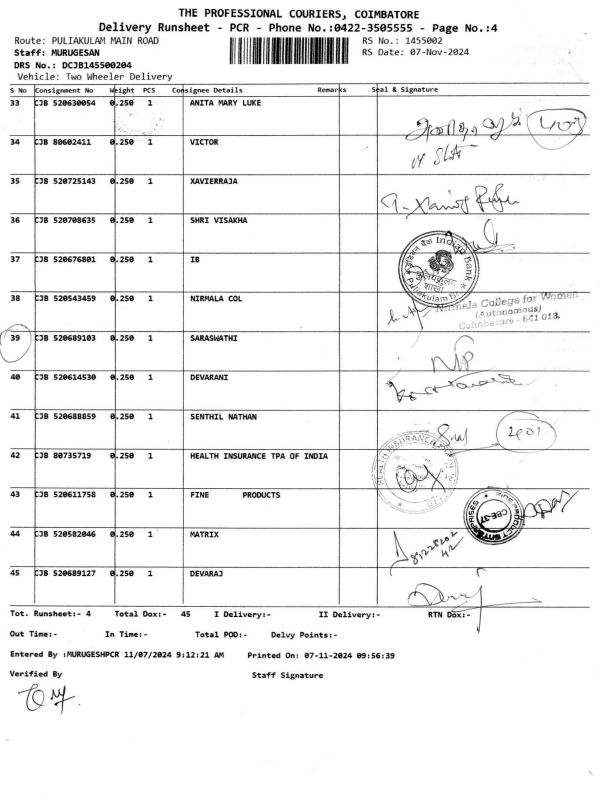 THE PROFESSIONAL COURIERS, COIMBATORE
Delivery Runsheet - PCR - Phone No.:0422-3505555 - Page No.:4
Route: PULIAKULAM MAIN ROAD RS No.: 1455002
Staff: MURUGESAN RS Date: 07-Nov-2024
DRS No.: DCJB145500204
Vehicle: Two Wheeler Delivery
S No Consignment No Weight PCS Consignee Details Remarks Seal & Signature
33 CJB 520630054 0.250 1 ANITA MARY LUKE
34 CJB 80602411 0.250 1 VICTOR
35 CJB 520725143 0.250 1 XAVIERRAJA
36 CJB 520708635 0.250 1 SHRI VISAKHA
37 CJB 520676801 0.250 1 IB
Indian Bank
38 CJB 520543459 0.250 1 NIRMALA COL
Nirmala College for Women
(Autonomous)
Coimbatore - 641 018.
39 CJB 520689103 0.250 1 SARASWATHI
NP
40 CJB 520614530 0.250 1 DEVARANI
41 CJB 520688859 0.250 1 SENTHIL NATHAN
42 CJB 80735719 0.250 1 HEALTH INSURANCE TPA OF INDIA
HEALTH INSURANCE
43 CJB 520611758 0.250 1 FINE PRODUCTS
CBE-37
44 CJB 520582046 0.250 1 MATRIX
45 CJB 520689127 0.250 1 DEVARAJ
Tot. Runsheet:- 4 Total Dox:- 45 I Delivery:- II Delivery:- RTN Dox:-
Out Time:- In Time:- Total POD:- Delvy Points:-
Entered By :MURUGESHPCR 11/07/2024 9:12:21 AM Printed On: 07-11-2024 09:56:39
Verified By Staff Signature